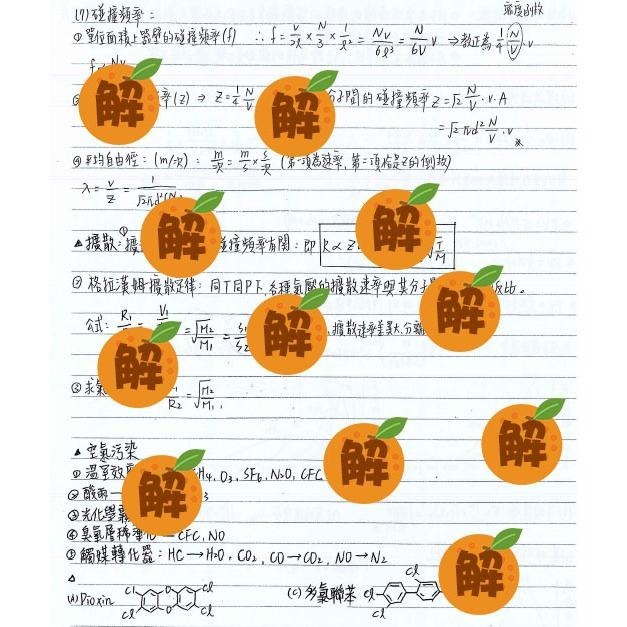 (7) 碰撞頻率：
密度的故
①單位面積上器壁的碰撞頻率(f) ∴f = v/2l × N/3 × 1/l² = Nv/6l³ = N/6V v ⇒ 教正為 1/4 (N/V)·v
解
率(z) ⇒ Z = 1/4 N/V
解
分子間的碰撞頻率 Z = √2 N/V · v · A
= √2 πd² N/V · v
④平均自由徑：(m/次)： m/次 = m/s × s/次 (第一項為速率, 第二項恰是Z的倒數)
λ = v/Z = 1/√2πd²(N
解
解
▲擴散：①擴
碰撞頻率有關：即 R ∝ Z
√T/M
② 格拉漢姆擴散定律：同T同P下, 各種氣體的擴散速率與其分子
解
反比。
公式： R₁ = V₁ = √M₂/M₁ = S₁/S₂
解
解
, 擴散速率差異大, 分離
③求氣
R₂ = √M₂/M₁
解
解
▲空氣污染
①溫室效
H₄, O₃, SF₆, N₂O, CFC
解
②酸雨—
解
3
③光化學霧
④臭氧層稀薄化 → CFC, NO
⑤觸媒轉化器：HC → H₂O, CO₂, CO → CO₂, NO → N₂
△
(A) Dioxin Cl O Cl Cl O Cl
(C) 多氯聯苯 Cl Cl Cl
解